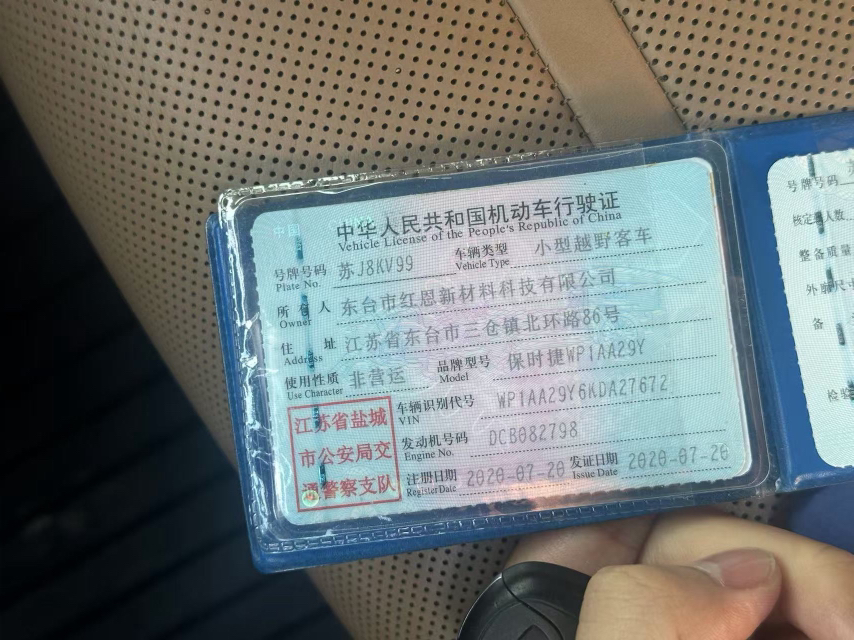 中华人民共和国机动车行驶证
Vehicle License of the People's Republic of China
号牌号码 苏J8KV99 车辆类型 小型越野客车
Plate No. Vehicle Type
所有人 东台市红恩新材料科技有限公司
Owner
住址 江苏省东台市三仓镇北环路86号
Address
使用性质 非营运 品牌型号 保时捷WP1AA29Y
Use Character Model
江苏省盐城
市公安局交
通警察支队
车辆识别代号 WP1AA29Y6KDA27672
VIN
发动机号码 DCB082798
Engine No.
注册日期 2020-07-20 发证日期 2020-07-26
Register Date Issue Date
号牌号码
核定载人数
整备质量
外廓尺寸
备
检验